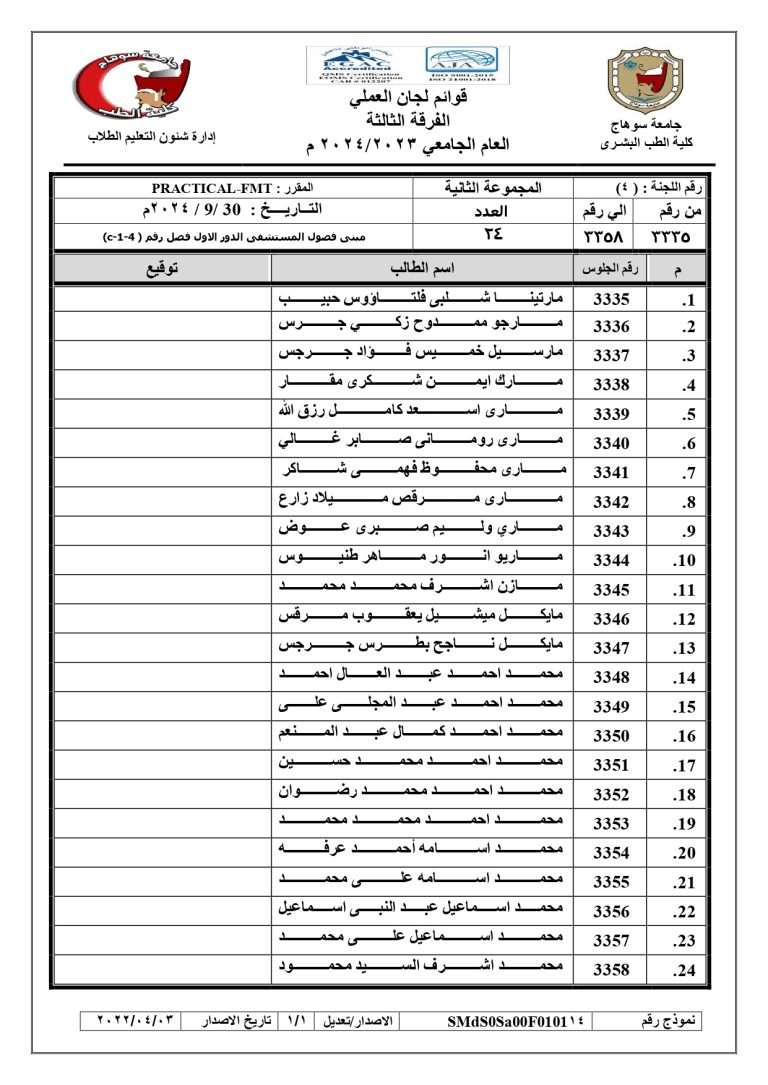 جامعة سوهاج
كلية الطب البشرى
EGAC
Accredited
QMS Certification
EOHMS Certification
CAB # 012207
AJA
ISO 9001:2015
ISO 21001:2018
قوائم لجان العملي
الفرقة الثالثة
العام الجامعي ٢٠٢٤/٢٠٢٣ م
جامعة سوهاج
كلية الطب
إدارة شئون التعليم الطلاب
رقم اللجنة : ( ٤) المجموعة الثانية المقرر : PRACTICAL-FMT
من رقم الي رقم العدد التـاريـــخ : 30 /9 / ٢٠٢٤م
٣٣٣٥ ٣٣٥٨ ٢٤ مبنى فصول المستشفى الدور الاول فصل رقم ( c-1-4)
م رقم الجلوس اسم الطالب توقيع
1. 3335 مارتينا شلبى فلتاؤوس حبيب
2. 3336 مارجو ممدوح زكي جرس
3. 3337 مارسيل خميس فؤاد جرجس
4. 3338 مارك ايمن شكرى مقار
5. 3339 مارى اسعد كامل رزق الله
6. 3340 مارى رومانى صابر غالي
7. 3341 مارى محفوظ فهمى شاكر
8. 3342 مارى مرقص ميلاد زارع
9. 3343 ماري وليم صبرى عوض
10. 3344 ماريو انور ماهر طنيوس
11. 3345 مازن اشرف محمد محمد
12. 3346 مايكل ميشيل يعقوب مرقس
13. 3347 مايكل ناجح بطرس جرجس
14. 3348 محمد احمد عبد العال احمد
15. 3349 محمد احمد عبد المجلى على
16. 3350 محمد احمد كمال عبد المنعم
17. 3351 محمد احمد محمد حسين
18. 3352 محمد احمد محمد رضوان
19. 3353 محمد احمد محمد محمد
20. 3354 محمد اسامه أحمد عرفه
21. 3355 محمد اسامه على محمد
22. 3356 محمد اسماعيل عبد النبى اسماعيل
23. 3357 محمد اسماعيل على محمد
24. 3358 محمد اشرف السيد محمود
نموذج رقم SMdS0Sa00F0101١٤ الاصدار/تعديل ١/١ تاريخ الاصدار ٢٠٢٢/٠٤/٠٣